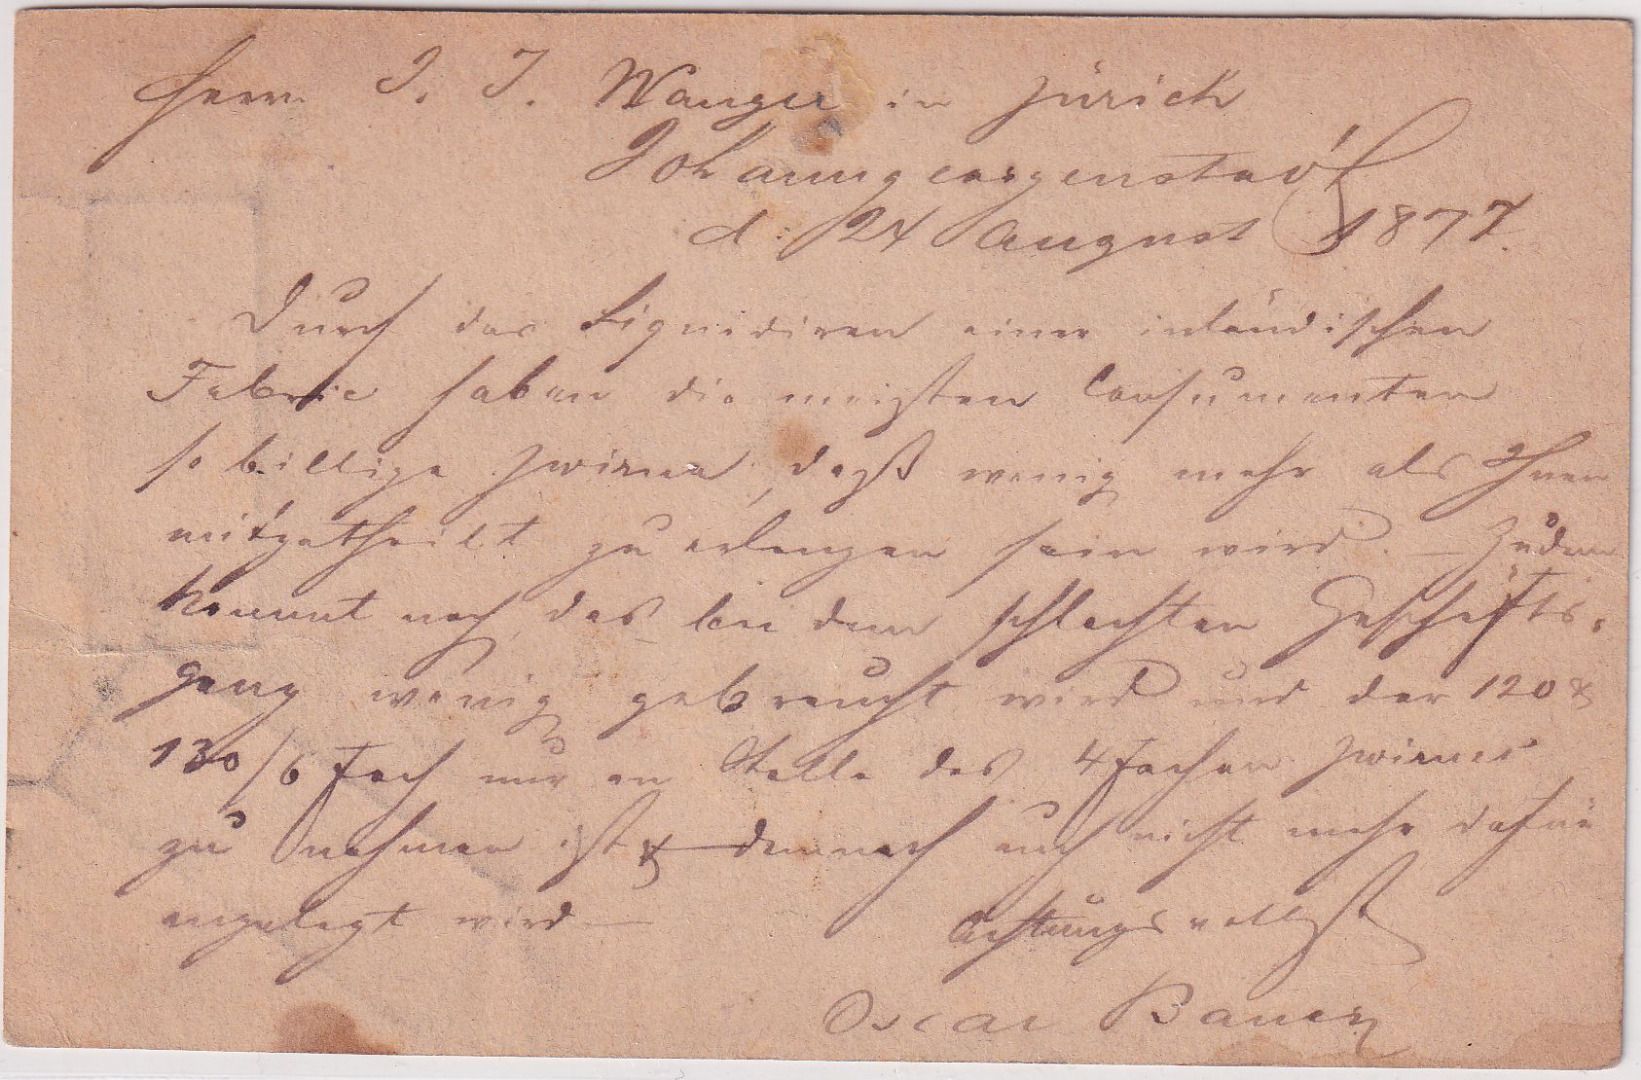 Herrn J. J. Wanger in Zürich
Johanngeorgenstadt
d. 24 August 1877.
Durch das Liquidiren einer inländischen
Fabric haben die meisten Consumenten
so billige Zwirne, daß wenig mehr als Ihnen
mitgetheilt zu erlangen sein wird. – Zudem
kommt noch, das bei dem schlechten Geschäfts-
gang wenig gebraucht wird und der 120 &
130/6 fach nur an Stelle des 4 fachen Zwirnes
zu nehmen ist & demnach auch nicht mehr dafür
angelegt wird –
Achtungsvollst
Oscar Bauer